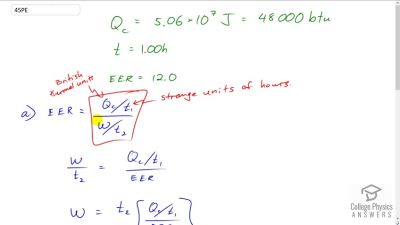 45PE
Q_c = 5.06 * 10^7 J = 48000 btu
t = 1.00h
EER = 12.0
British thermal units
a) EER = (Q_c/t_1)/(W/t_2)
strange units of hours.
W/t_2 = (Q_c/t_1)/EER
W = t_2 [(Q_c/t_1)/EER
College Physics
ANSWERS